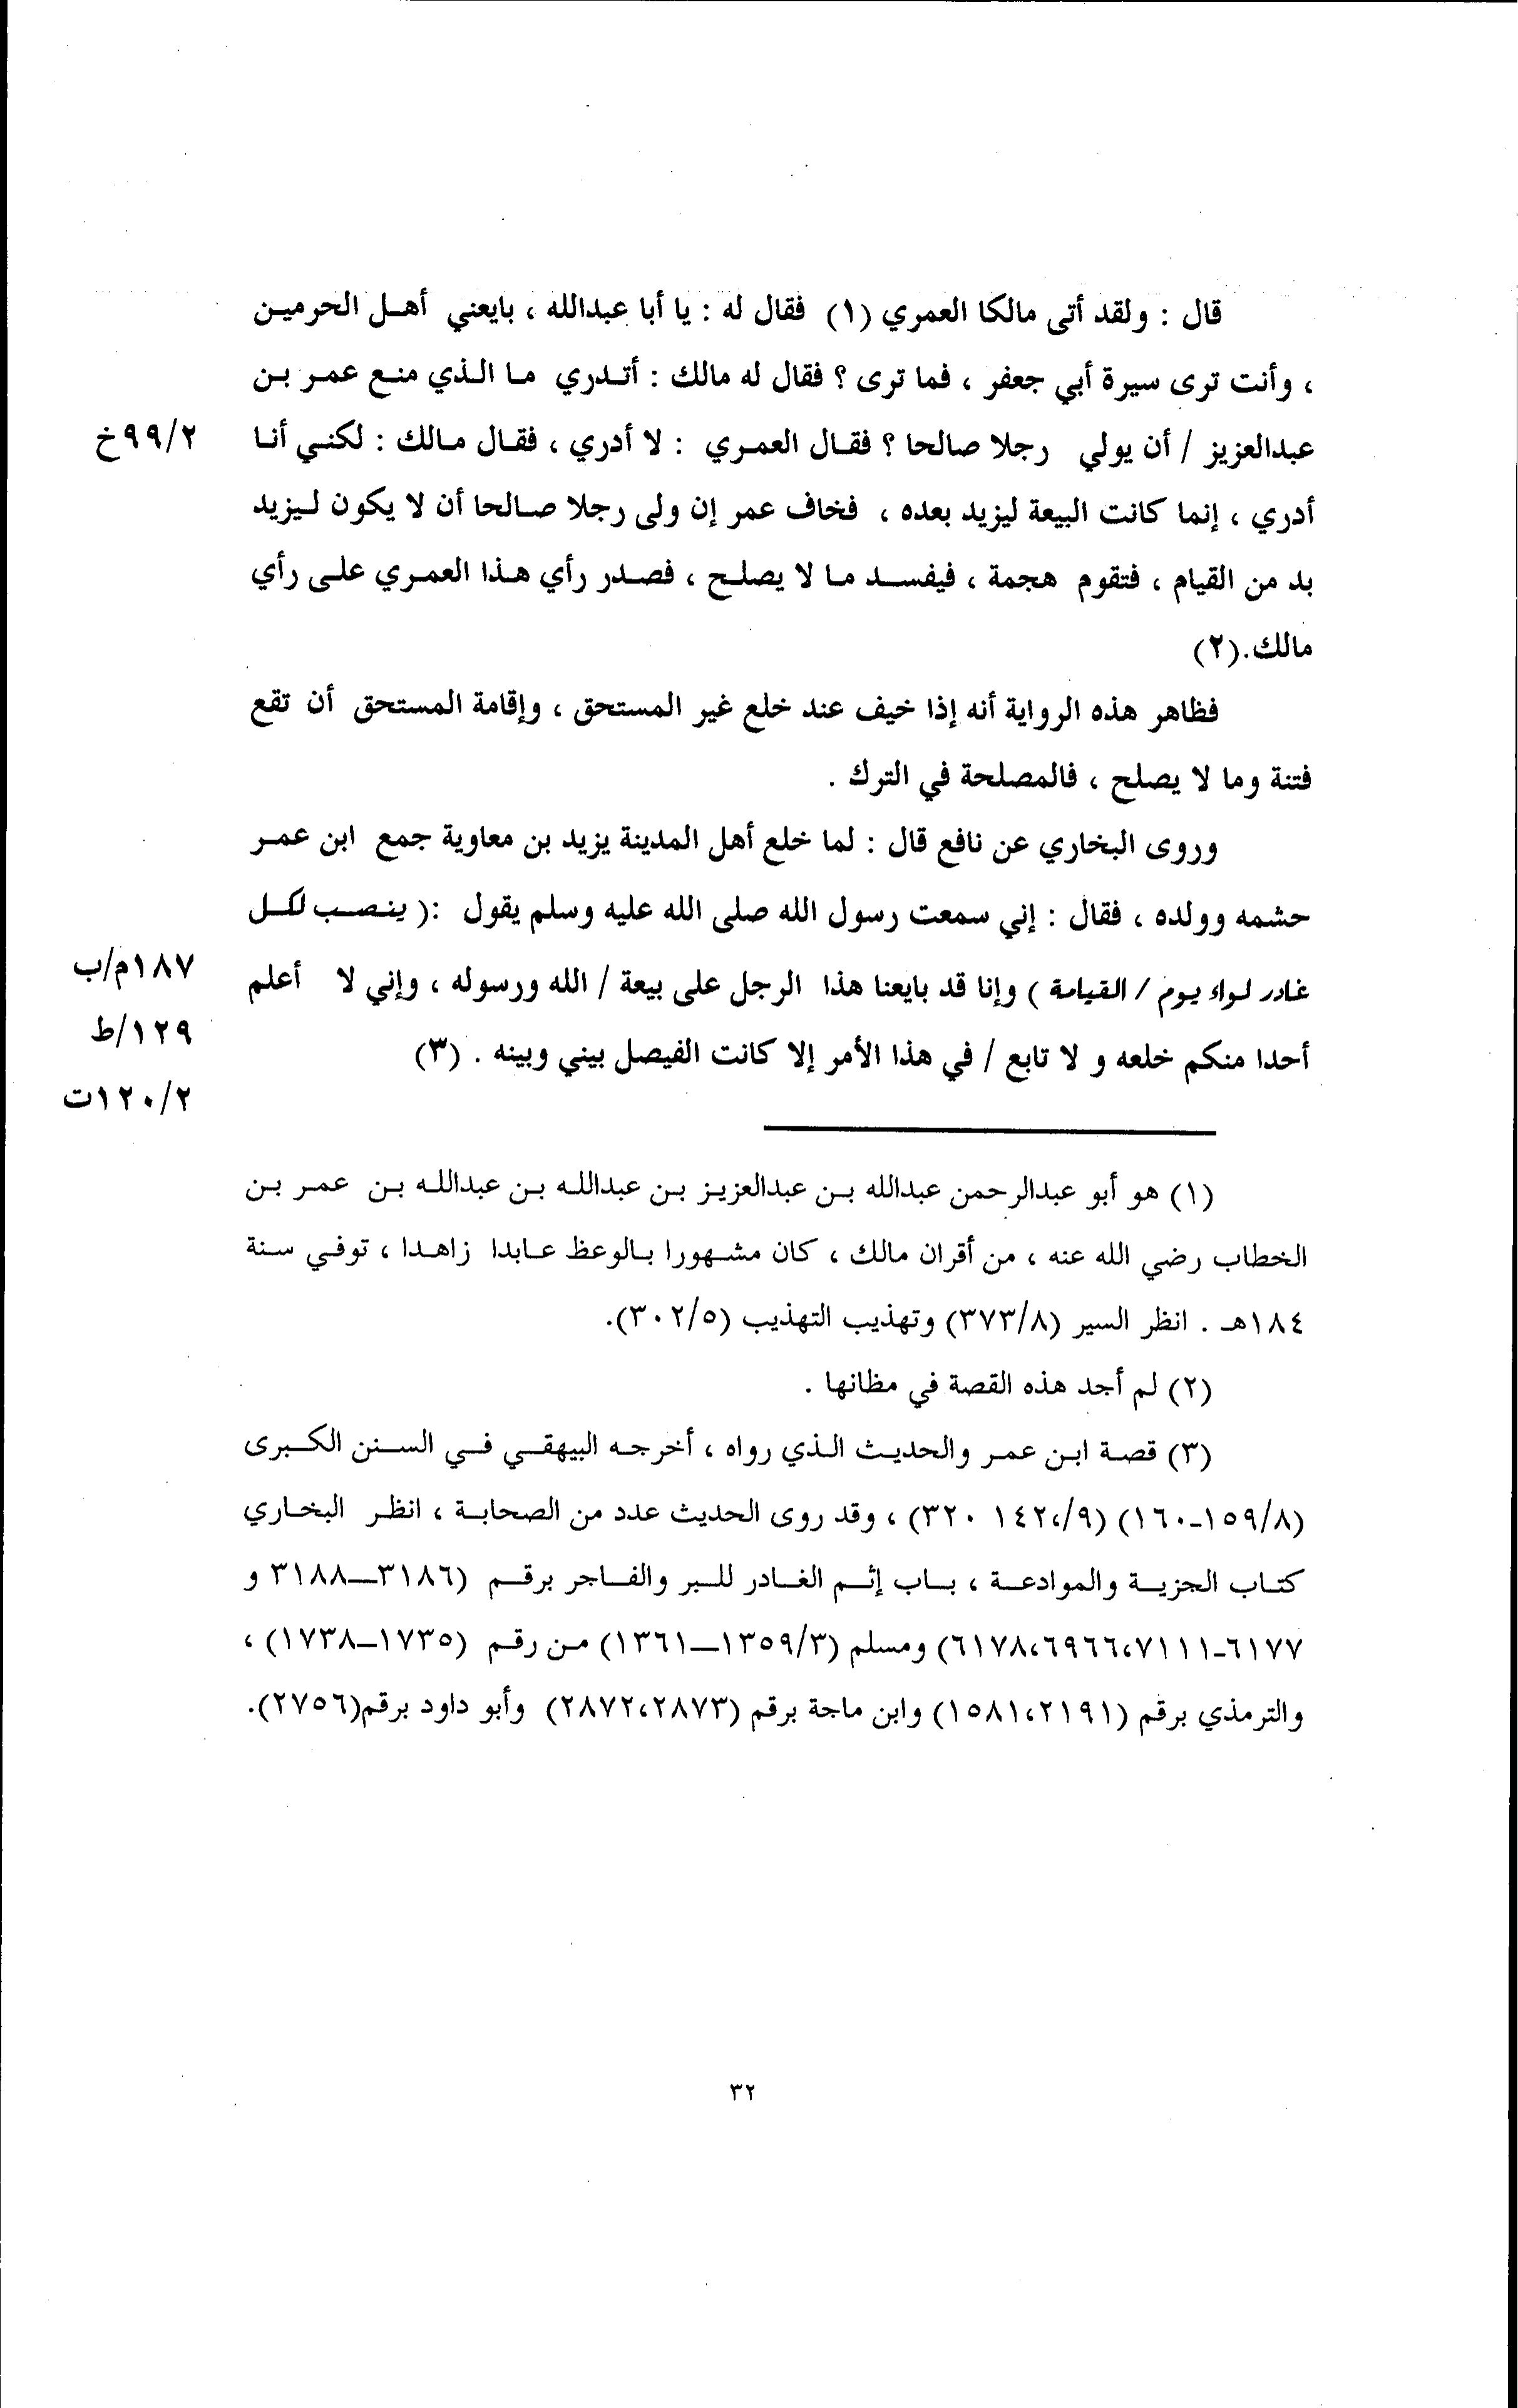 قال : ولقد أتى مالكا العمري (١) فقال له : يا أبا عبدالله ، بايعني أهل الحرمين
، وأنت ترى سيرة أبي جعفر ، فما ترى ؟ فقال له مالك : أتدري ما الذي منع عمر بن
عبدالعزيز / أن يولي رجلا صالحا ؟ فقال العمري : لا أدري ، فقال مالك : لكني أنا
٩٩/٢خ
أدري ، إنما كانت البيعة ليزيد بعده ، فخاف عمر إن ولى رجلا صالحا أن لا يكون ليزيد
بد من القيام ، فتقوم هجمة ، فيفسد ما لا يصلح ، فصدر رأي هذا العمري على رأي
مالك.(٢)
فظاهر هذه الرواية أنه إذا خيف عند خلع غير المستحق ، وإقامة المستحق أن تقع
فتنة وما لا يصلح ، فالمصلحة في الترك .
وروى البخاري عن نافع قال : لما خلع أهل المدينة يزيد بن معاوية جمع ابن عمر
حشمه وولده ، فقال : إني سمعت رسول الله صلى الله عليه وسلم يقول :( ينصب لكل
غادر لواء يوم / القيامة ) وإنا قد بايعنا هذا الرجل على بيعة / الله ورسوله ، وإني لا أعلم
١٨٧م/ب
١٢٩/ط
أحدا منكم خلعه و لا تابع / في هذا الأمر إلا كانت الفيصل بيني وبينه . (٣)
١٢٠/٢ت
(١) هو أبو عبدالرحمن عبدالله بن عبدالعزيز بن عبدالله بن عبدالله بن عمر بن
الخطاب رضي الله عنه ، من أقران مالك ، كان مشهورا بالوعظ عابدا زاهدا ، توفي سنة
١٨٤هـ . انظر السير (٣٧٣/٨) وتهذيب التهذيب (٣٠٢/٥).
(٢) لم أجد هذه القصة في مظانها .
(٣) قصة ابن عمر والحديث الذي رواه ، أخرجه البيهقي في السنن الكبرى
(١٥٩/٨-١٦٠) (١٤٢،/٩ ٣٢٠) ، وقد روى الحديث عدد من الصحابة ، انظر البخاري
كتاب الجزية والموادعة ، باب إثم الغادر للبر والفاجر برقم (٣١٨٦-٣١٨٨ و
٦١٧٧-٦١٧٨،٦٩٦٦،٧١١١) ومسلم (١٣٥٩/٣-١٣٦١) من رقم (١٧٣٥-١٧٣٨) ،
والترمذي برقم (١٥٨١،٢١٩١) وابن ماجة برقم (٢٨٧٢،٢٨٧٣) وأبو داود برقم(٢٧٥٦).
٣٢